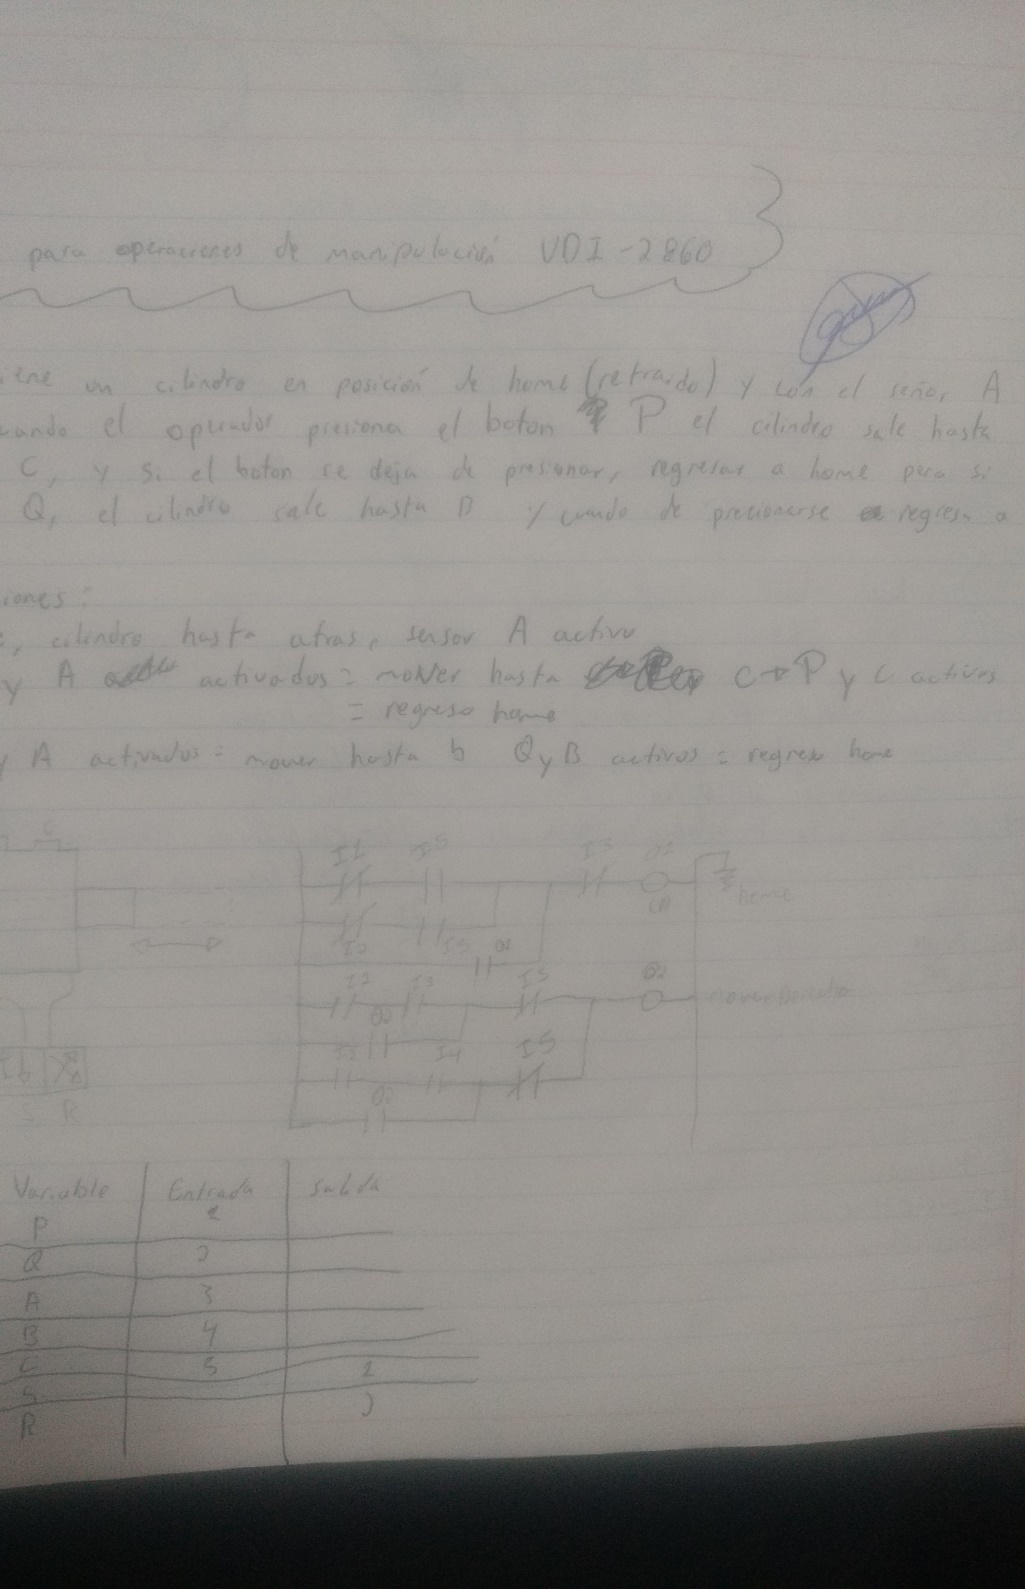 para operaciones de manipulación VDI-2860
un cilindro en posición de home (retraido) y con el señor A
el operador presiona el boton P el cilindro sale hasta
C, y si el boton se deja de presionar, regresar a home pero si
Q, el cilindro sale hasta B y cuando de precionarse regresa a
iones:
cilindro hasta atras, sensor A activo
y A activados = mover hasta C → P y C activos
= regreso home
y A activados = mover hasta b Q y B activos = regreso home
I1 I5 I3 01
home
I2 I5 01
I2 I3 I5 02
02
I3 I4 I5
S R
02
Variable Entrada Salida
P 1
Q 2
A 3
B 4
C 5 1
S 2
R